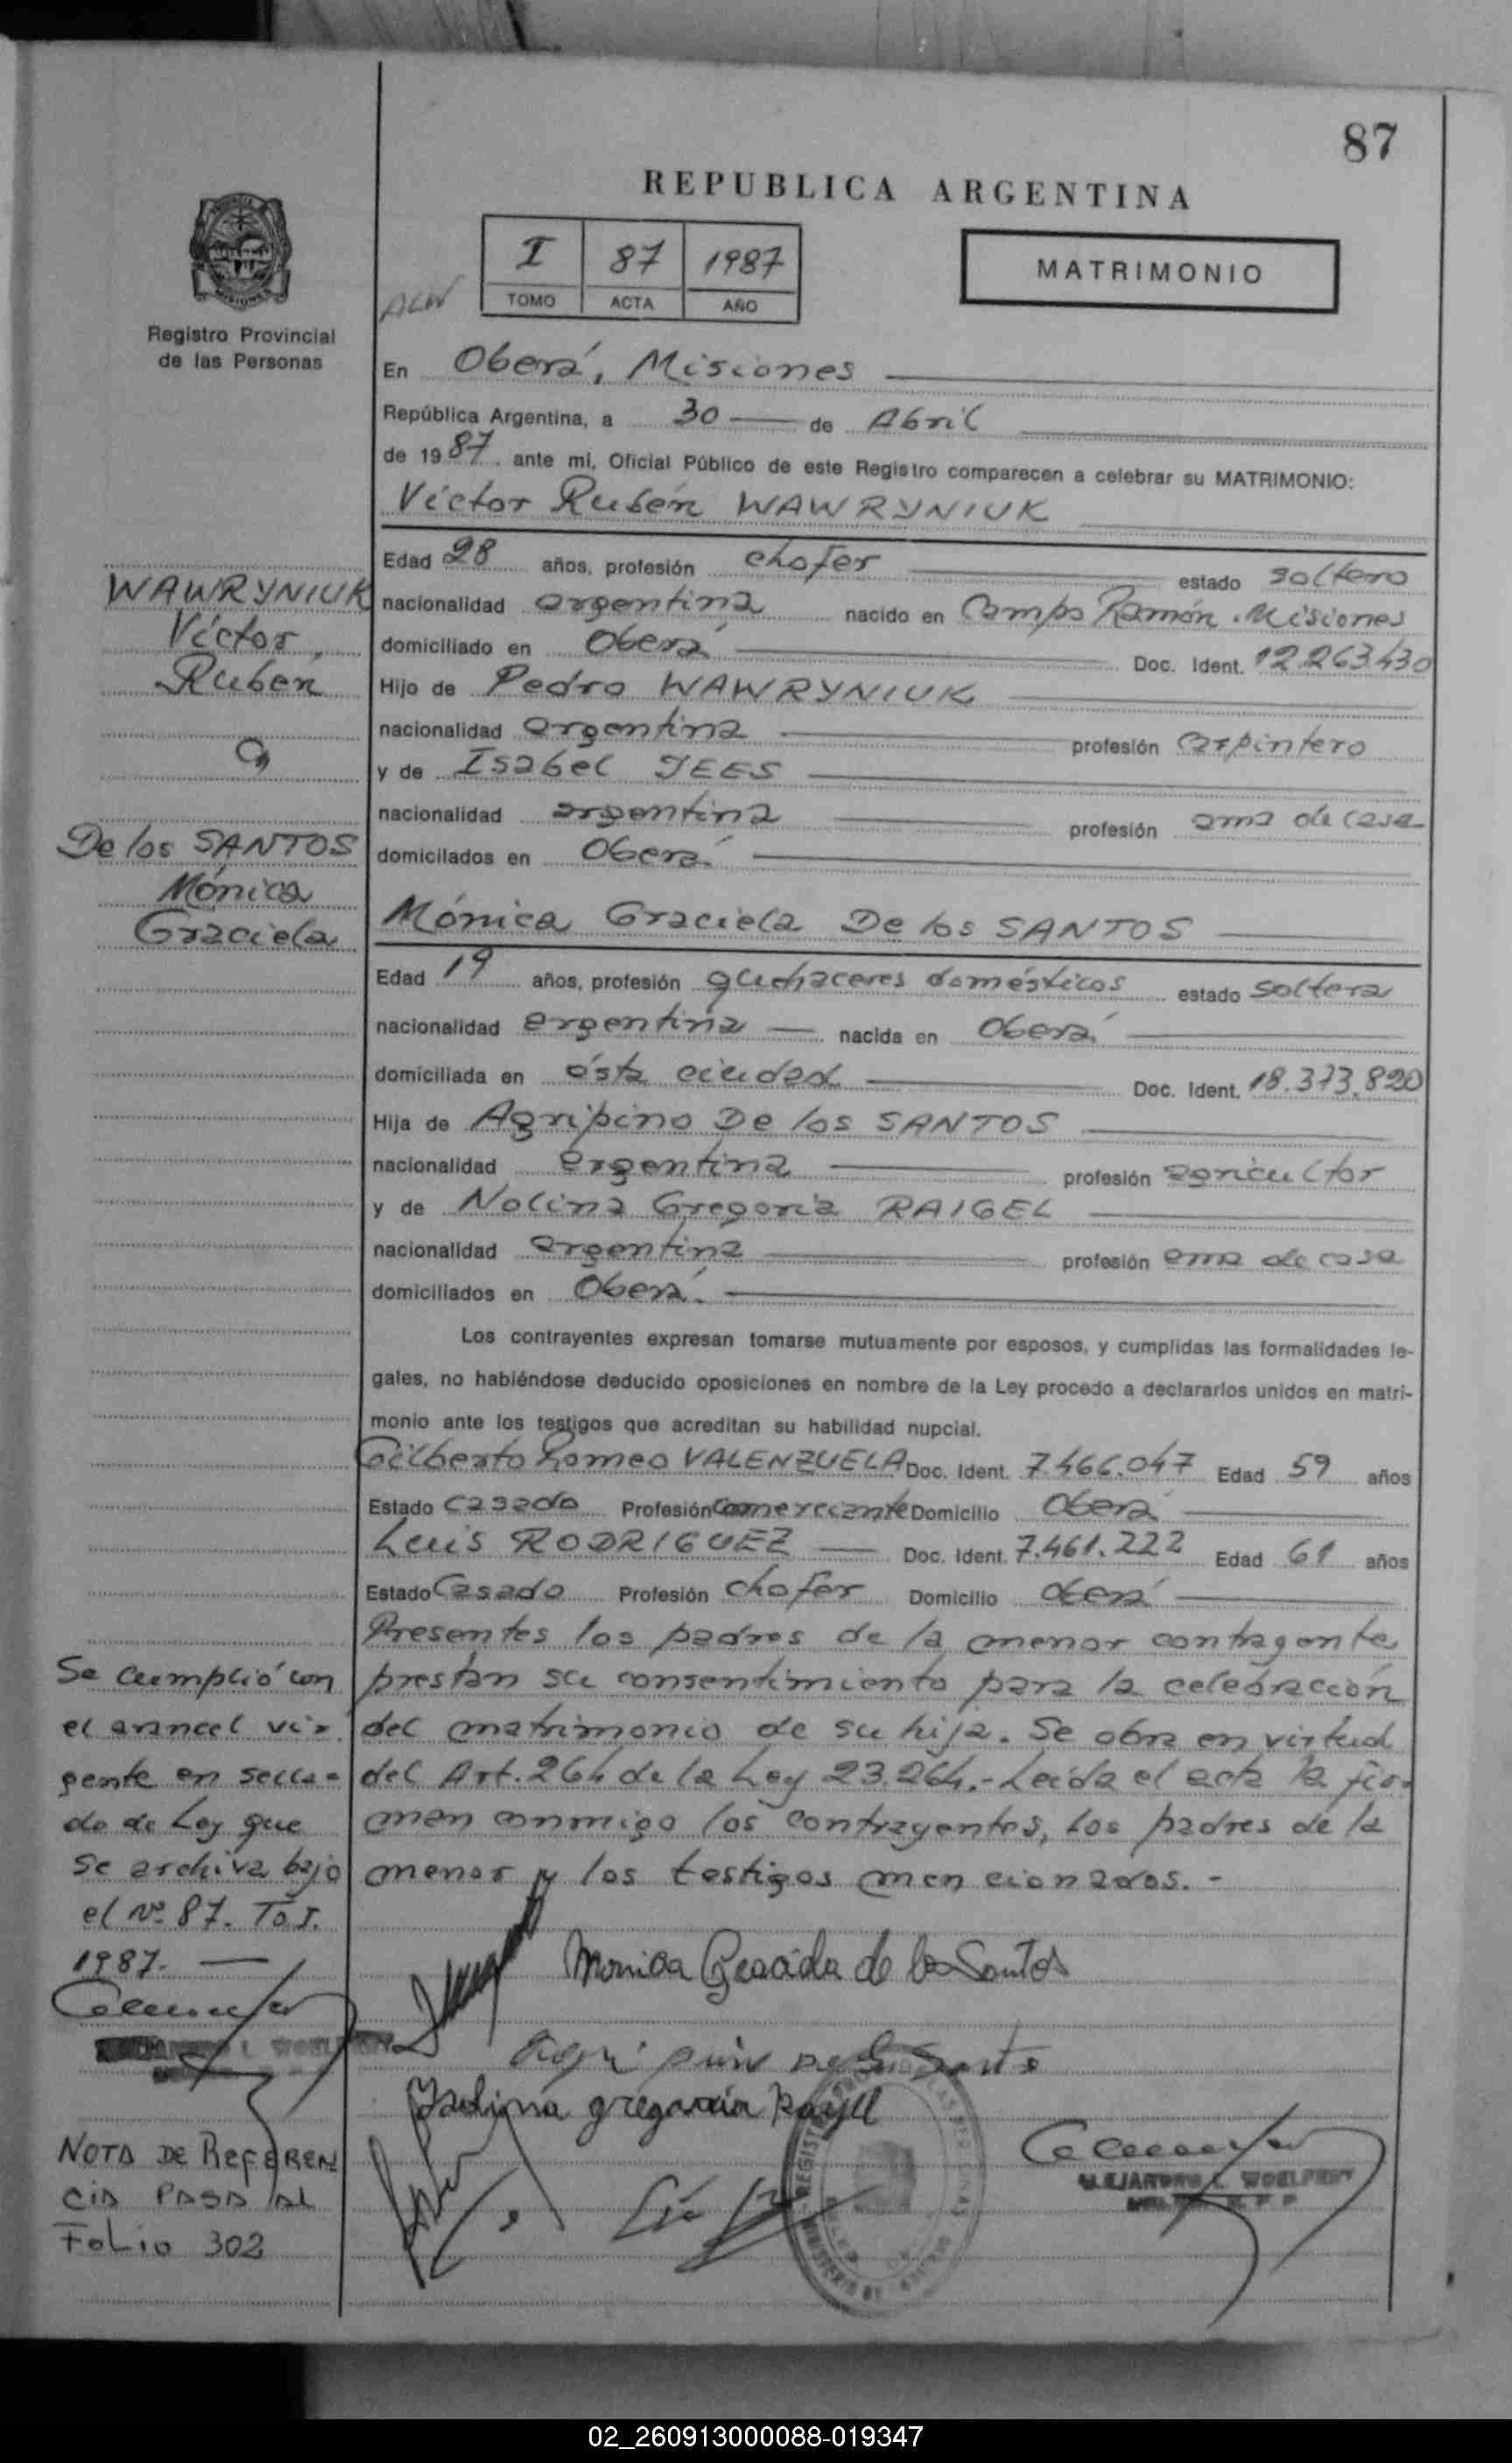 87
REPUBLICA ARGENTINA
I 87 1987
TOMO ACTA AÑO
MATRIMONIO
Registro Provincial
de las Personas
En Oberá, Misiones
República Argentina, a 30 de Abril
de 1987. ante mi, Oficial Público de este Registro comparecen a celebrar su MATRIMONIO:
Víctor Rubén WAWRYNIUK
Edad 28 años, profesión chofer estado soltero
nacionalidad argentina nacido en Campo Ramón. Misiones
domiciliado en Oberá Doc. Ident. 12.263.430
Hijo de Pedro WAWRYNIUK
nacionalidad argentina profesión carpintero
y de Isabel JEES
nacionalidad argentina profesión ama de casa
domicilados en Oberá.
Mónica Graciela De los SANTOS
Edad 19 años, profesión quehaceres domésticos estado soltera
nacionalidad argentina nacida en Oberá
domiciliada en ésta ciudad Doc. Ident. 18.373.820
Hija de Agripino De los SANTOS
nacionalidad argentina profesión agricultor
y de Nolina Gregoria RAIGEL
nacionalidad argentina profesión ama de casa
domiciliados en Oberá.
Los contrayentes expresan tomarse mutuamente por esposos, y cumplidas las formalidades le-
gales, no habiéndose deducido oposiciones en nombre de la Ley procedo a declararlos unidos en matri-
monio ante los testigos que acreditan su habilidad nupcial.
Gilberto Romeo VALENZUELA Doc. Ident. 7.466.047 Edad 59 años
Estado Casado Profesión Comerciante Domicilio Oberá
Luis RODRIGUEZ Doc. Ident. 7.461.222 Edad 61 años
Estado Casado Profesión chofer Domicilio Oberá
Presentes los padres de la menor contrayente
prestan su consentimiento para la celebración
del matrimonio de su hija. Se obra en virtud
del Art. 264 de la Ley 23.264.- Leída el acta la fir-
man conmigo los contrayentes, los padres de la
menor y los testigos mencionados. -
WAWRYNIUK
Víctor
Rubén
De los SANTOS
Mónica
Graciela
Se cumplió con
el arancel vi-
gente en sella-
do de Ley que
se archiva bajo
el Nº 87. Tº I.
1987.
Monica Graciela de los Santos
gregoria
NOTA DE REFEREN
CIA PASA AL
FOLIO 302
02_260913000088-019347